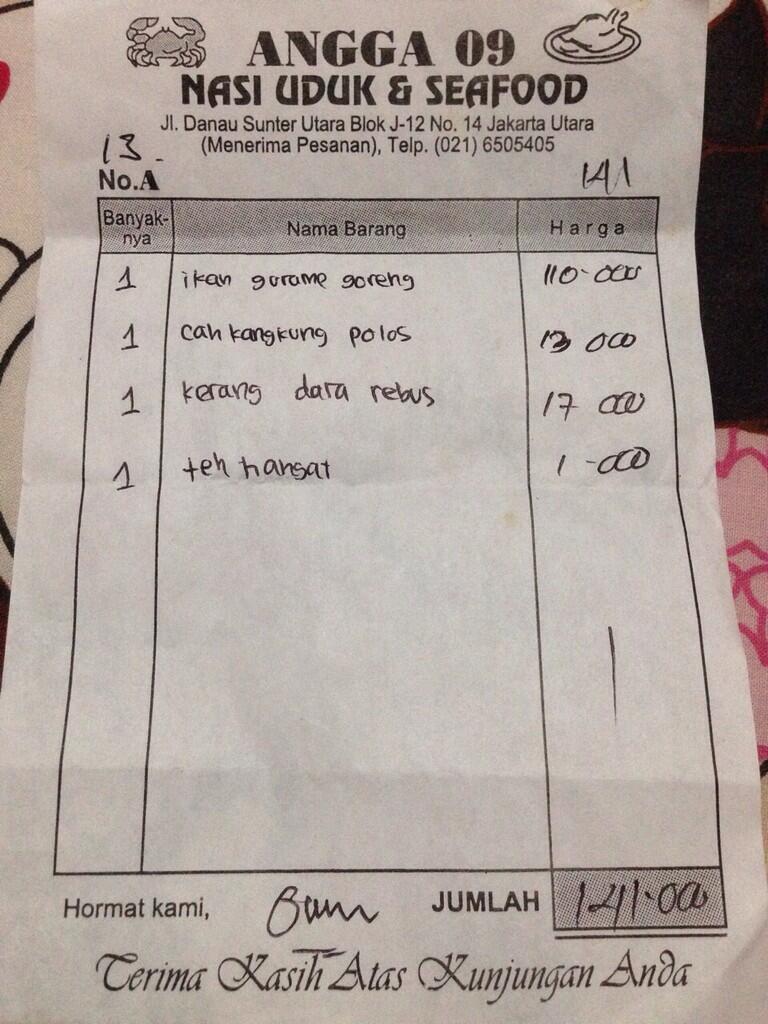 ANGGA 09
NASI UDUK & SEAFOOD
Jl. Danau Sunter Utara Blok J-12 No. 14 Jakarta Utara
(Menerima Pesanan), Telp. (021) 6505405
13.
No.A 141
Banyak-nya Nama Barang Harga
1 ikan gurame goreng 110.000
1 cah kangkung polos 13 000
1 kerang dara rebus 17 000
1 teh hangat 1.000
Hormat kami, JUMLAH 141.000
Terima Kasih Atas Kunjungan Anda